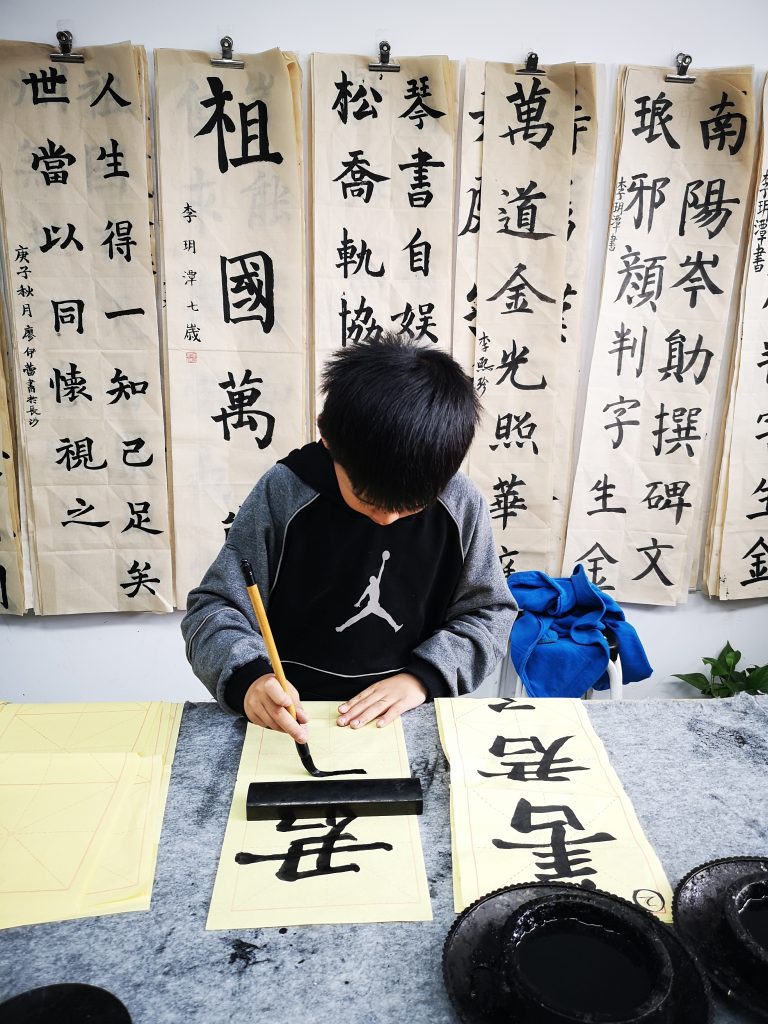 人生得一知己足矣
世當以同懷視之
庚子秋月廖伊書於長沙
祖國萬
李玥潭七歲
琴書自娛
松喬軌協
萬道金光照華
李熙珍
南陽岑勛撰碑文
琅邪顏判字生金
李玥潭書
李玥潭書
生金
君
君